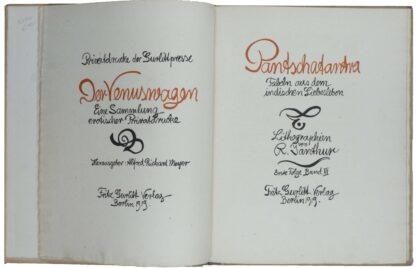 Privatdrucke der Gurlittpresse
Der Venuswagen
Eine Sammlung
erotischer Privatdrucke
Herausgeber Alfred Richard Meyer
Fritz Gurlitt Verlag
Berlin 1919.
Pantschatantra
Fabeln aus dem
indischen Liebesleben
Lithographien
von
R. Janthur
Erste Folge Band VI
Fritz Gurlitt Verlag
Berlin 1919.